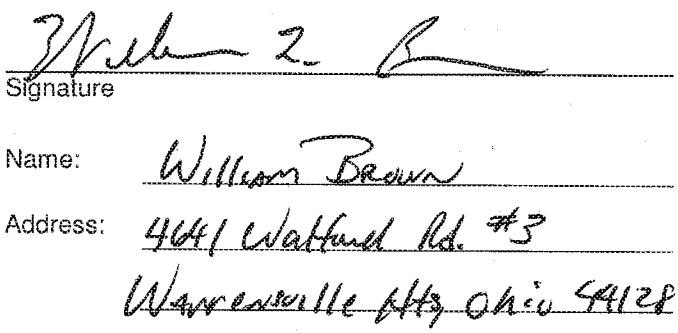 William L. B
Signature
Name: William Brown
Address: 4641 Walford Rd. #3
Warrensville Hts, Ohio 44128